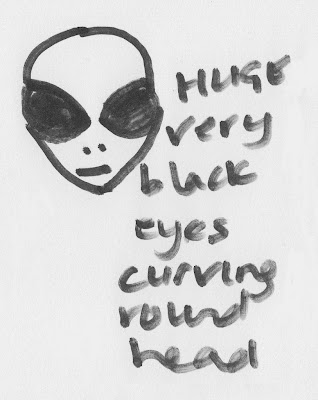 HUGE
very
black
Eyes
curving
round
head